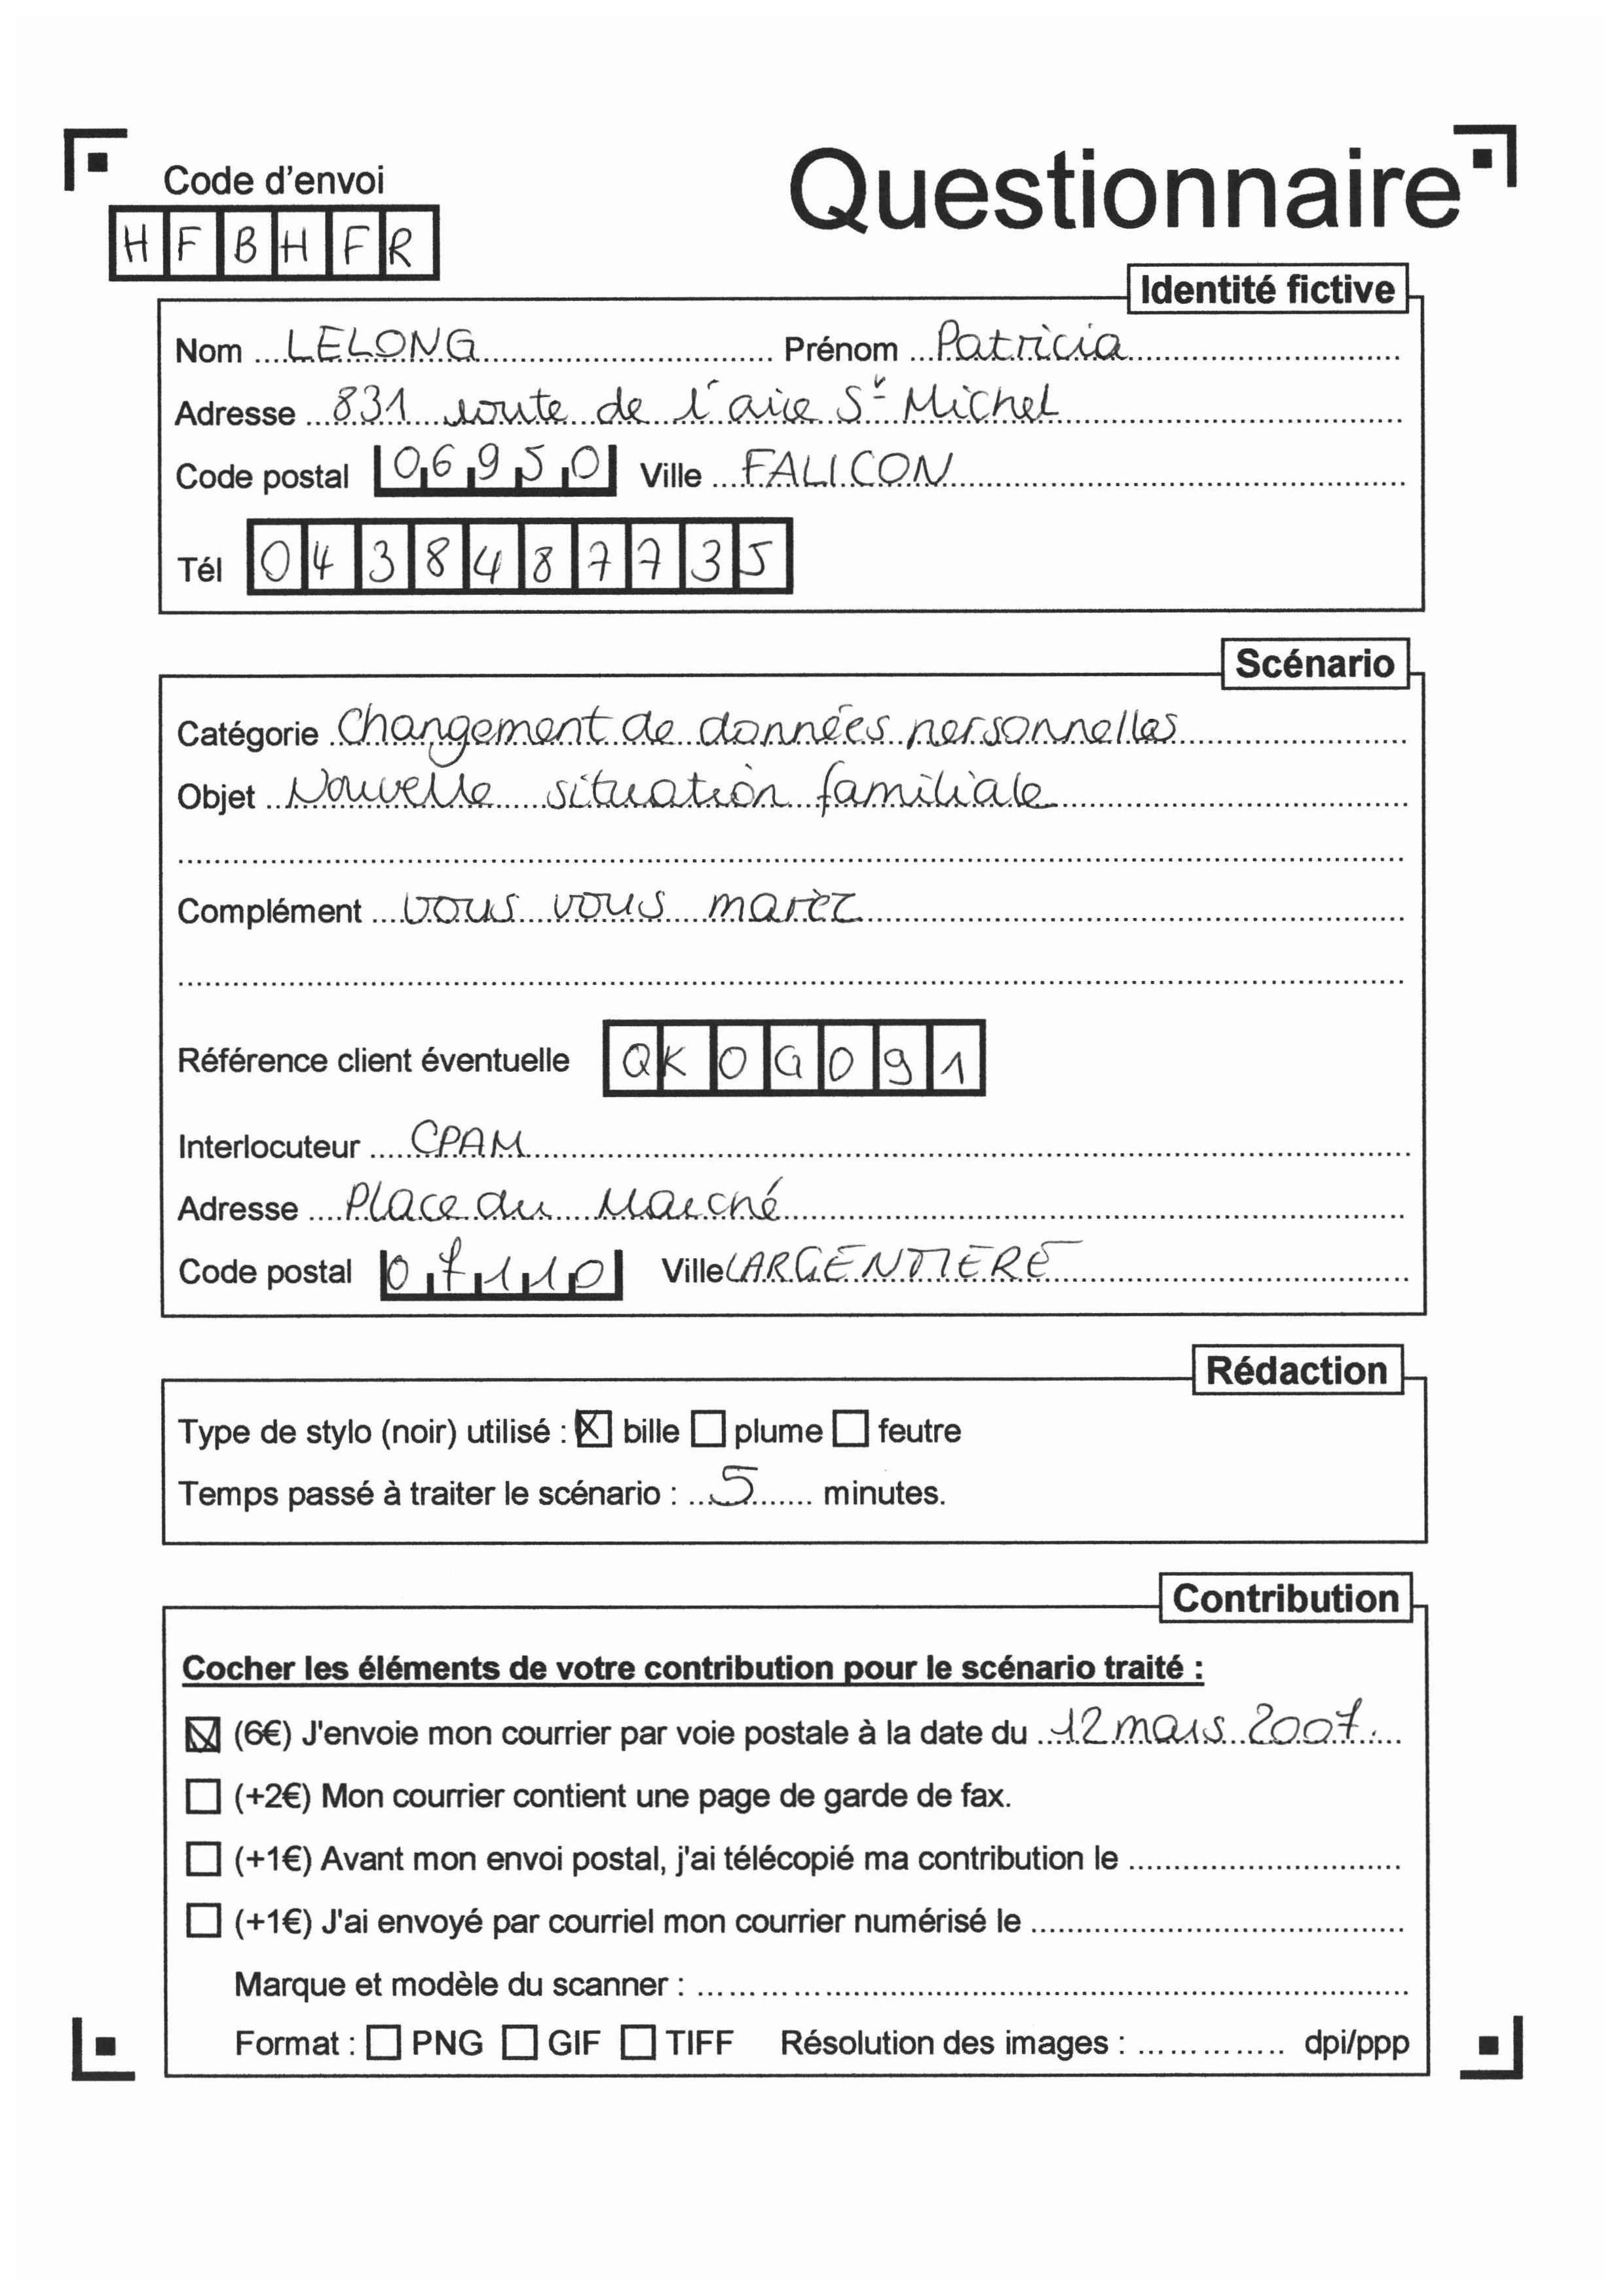 Code d'envoi
Questionnaire
H F B H F R
Identité fictive
Nom LELONG Prénom Patricia
Adresse 831 route de l'aire St Michel
Code postal 06950 Ville FALICON
Tél 0438487735
Scénario
Catégorie Changement de données personnelles
Objet Nouvelle situation familiale
Complément vous vous mariez
Référence client éventuelle QK0G091
Interlocuteur CPAM
Adresse Place du Marché
Code postal 07110 Ville LARGENTIERE
Rédaction
Type de stylo (noir) utilisé : ☒ bille ☐ plume ☐ feutre
Temps passé à traiter le scénario : 5 minutes.
Contribution
Cocher les éléments de votre contribution pour le scénario traité :
☒ (6€) J'envoie mon courrier par voie postale à la date du 12 mars 2007
☐ (+2€) Mon courrier contient une page de garde de fax.
☐ (+1€) Avant mon envoi postal, j'ai télécopié ma contribution le
☐ (+1€) J'ai envoyé par courriel mon courrier numérisé le
Marque et modèle du scanner :
Format : ☐ PNG ☐ GIF ☐ TIFF Résolution des images : dpi/ppp